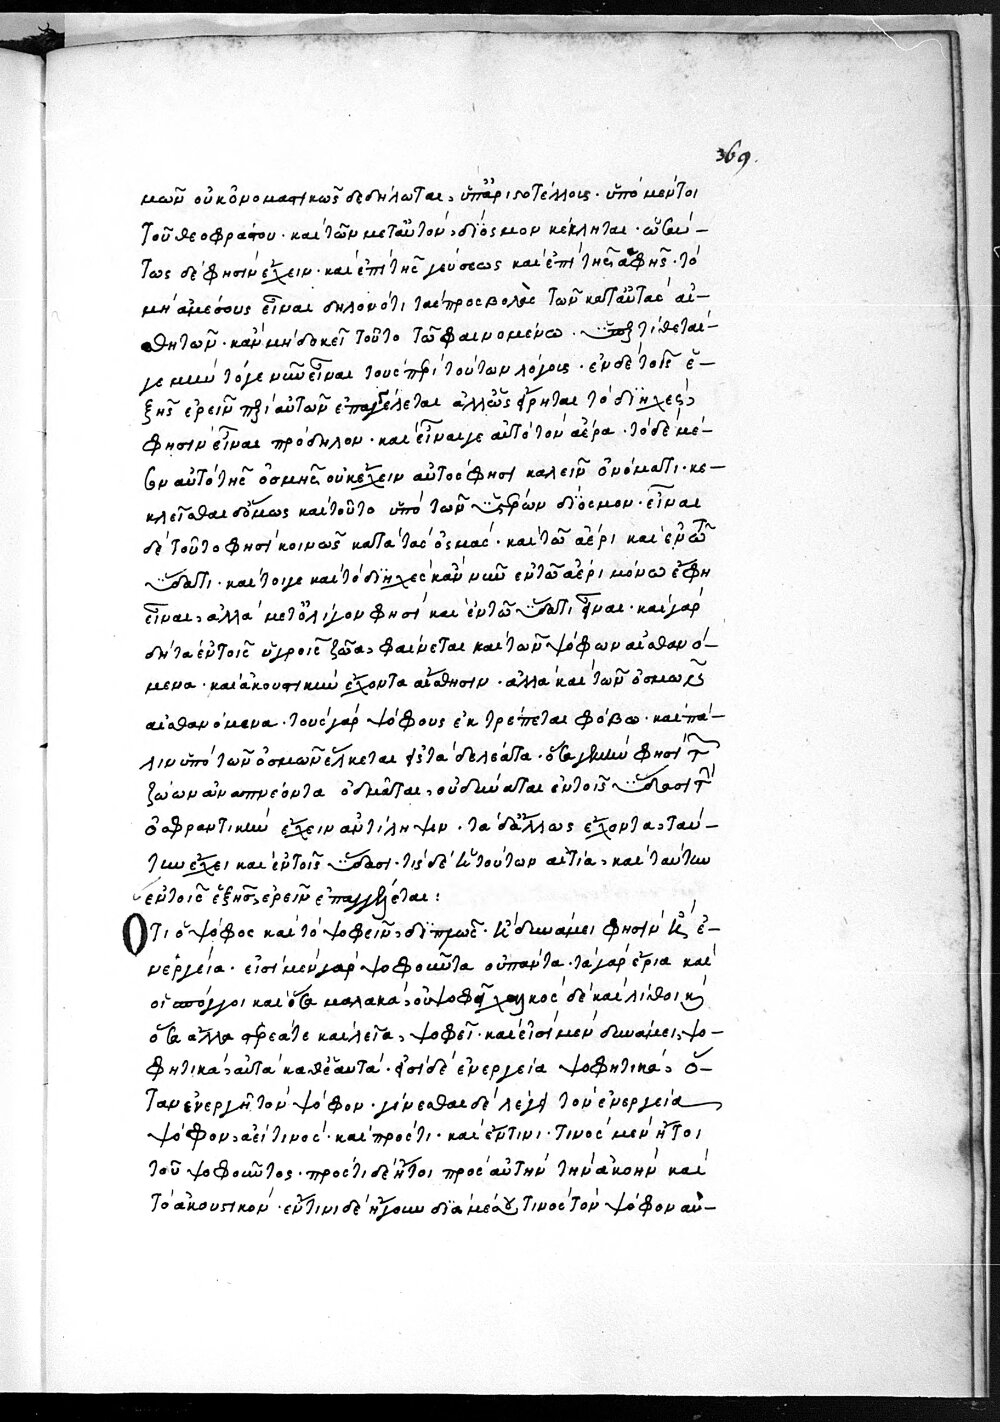 369.
μῶν οὐκ ὀνομαστικῶς δεδήλωται, ὑπ' ἀριστοτέλλους· ὑπὸ μέντοι
τοῦ θεοφράστου· καὶ τῶν μετ' αὐτὸν, δίοσμον κέκληται· ὡσαύ–
τως δέ φησιν ἔχειν· καὶ ἐπὶ τῆς γεύσεως καὶ ἐπὶ τῆς ἀφῆς· τὸ
μὴ ἀμέσους εἶναι δηλονότι τὰς προσβολὰς τῶν κατ' αὐτὰς αἰ–
σθητῶν· κἂν μὴ δοκεῖ τοῦτο τῶ φαινομένω· ὑπερτίθεται–
γε μὴν τό γε νῦν εἶναι τοὺς περὶ τούτων λόγους· ἐν δὲ τοῖς ἑ–
ξῆς ἐρεῖν περὶ αὐτῶν ἐπαγγέλεται ἄλλως εἴρηται τὸ διηχὲς,
φησιν εἶναι πρόδηλον· καὶ εἶναι γε αὐτὸ τὸν ἀέρα· τὸ δὲ μέ–
σον αὐτὸ τῆς ὀσμῆς οὐκ ἔχειν αὐτός φησι καλεῖν ὀνόματι· κε–
κλεῖσθαι δ' ὅμως καὶ τοῦτο ὑπὸ τῶν ὕστερον δίοσμον· εἶναι
δὲ τοῦτο φησὶ κοινῶς κατὰ τὰς ὀσμάς· καὶ τῶ ἀέρι καὶ ἐν τῶ
ὕδατι· καί τοιγε καὶ τὸ διηχὲς κἂν νῦν ἐν τῶ ἀέρι μόνω ἔφη
εἶναι, ἀλλὰ μετ' ὀλίγον φησὶ καὶ ἐν τῶ ὕδατι εἶναι· καὶ γὰρ
δὴ τὰ ἐν τοῖς ὑγροῖς ζῶα, φαίνεται καὶ τῶν ψόφων αἰσθανό–
μενα· καὶ ἀκουστικὴν ἔχοντα αἴσθησιν· ἀλλὰ καὶ τῶν ὀσμῶν
αἰσθανόμενα· τοὺς γὰρ ψόφους ἐκτρέπεται φόβω· καὶ πά–
λιν ὑπὸ τῶν ὀσμῶν ἕλκεται εἰς τὰ δελέατα· ὅσα μὲν φησὶ τῶν
ζώων ἀναπνέοντα ὀσμᾶται, οὐ δύναται ἐν τοῖς ὕδασι τὴν
ὀσφραντικὴν ἔχειν ἀντίληψιν· τὰ δ' ἄλλως ἔχοντα, ταύ–
την ἔχει καὶ ἐν τοῖς ὕδασι· τίς δὲ ἡ τούτων αἰτία, καὶ ταύτην
ἐν τοῖς ἑξῆς, ἐρεῖν ἐπαγγέλεται:
Ὅτι ὁ ψόφος καὶ τὸ ψοφεῖν, διττῶς· ἢ δυνάμει φησὶν ἢ ἐ–
νεργεία· εἰσὶ μὲν γὰρ ψοφοῦντα οὐ πάντα· τὰ γὰρ ἔρια καὶ
οἱ σπόγγοι καὶ ὅσα μαλακὰ, οὐ ψοφεῖ χαλκὸς δὲ καὶ λίθοι καὶ
ὅσα ἄλλα στερεά τε καὶ λεῖα, ψοφεῖ· καὶ εἰσὶ μὲν δυνάμει, ψο–
φητικὰ, αὐτὰ καθ' ἑαυτά· εἰσὶ δὲ ἐνεργεία ψοφητικὰ, ὅ–
ταν ἐνεργῆ τὸν ψόφον· γίνεσθαι δὲ λέγει τὸν ἐνεργεία
ψόφον, ἀεί τινος· καὶ πρός τι· καὶ ἔν τινι· τινὸς μὲν ἤτοι
τοῦ ψοφοῦντος· πρός τι δὲ ἤτοι πρὸς αὐτὴν τὴν ἀκοὴν καὶ
τὸ ἀκουστικόν· ἔν τινι δὲ ἤγουν διὰ μέσου τινὸς τὸν ψόφον αὐ–